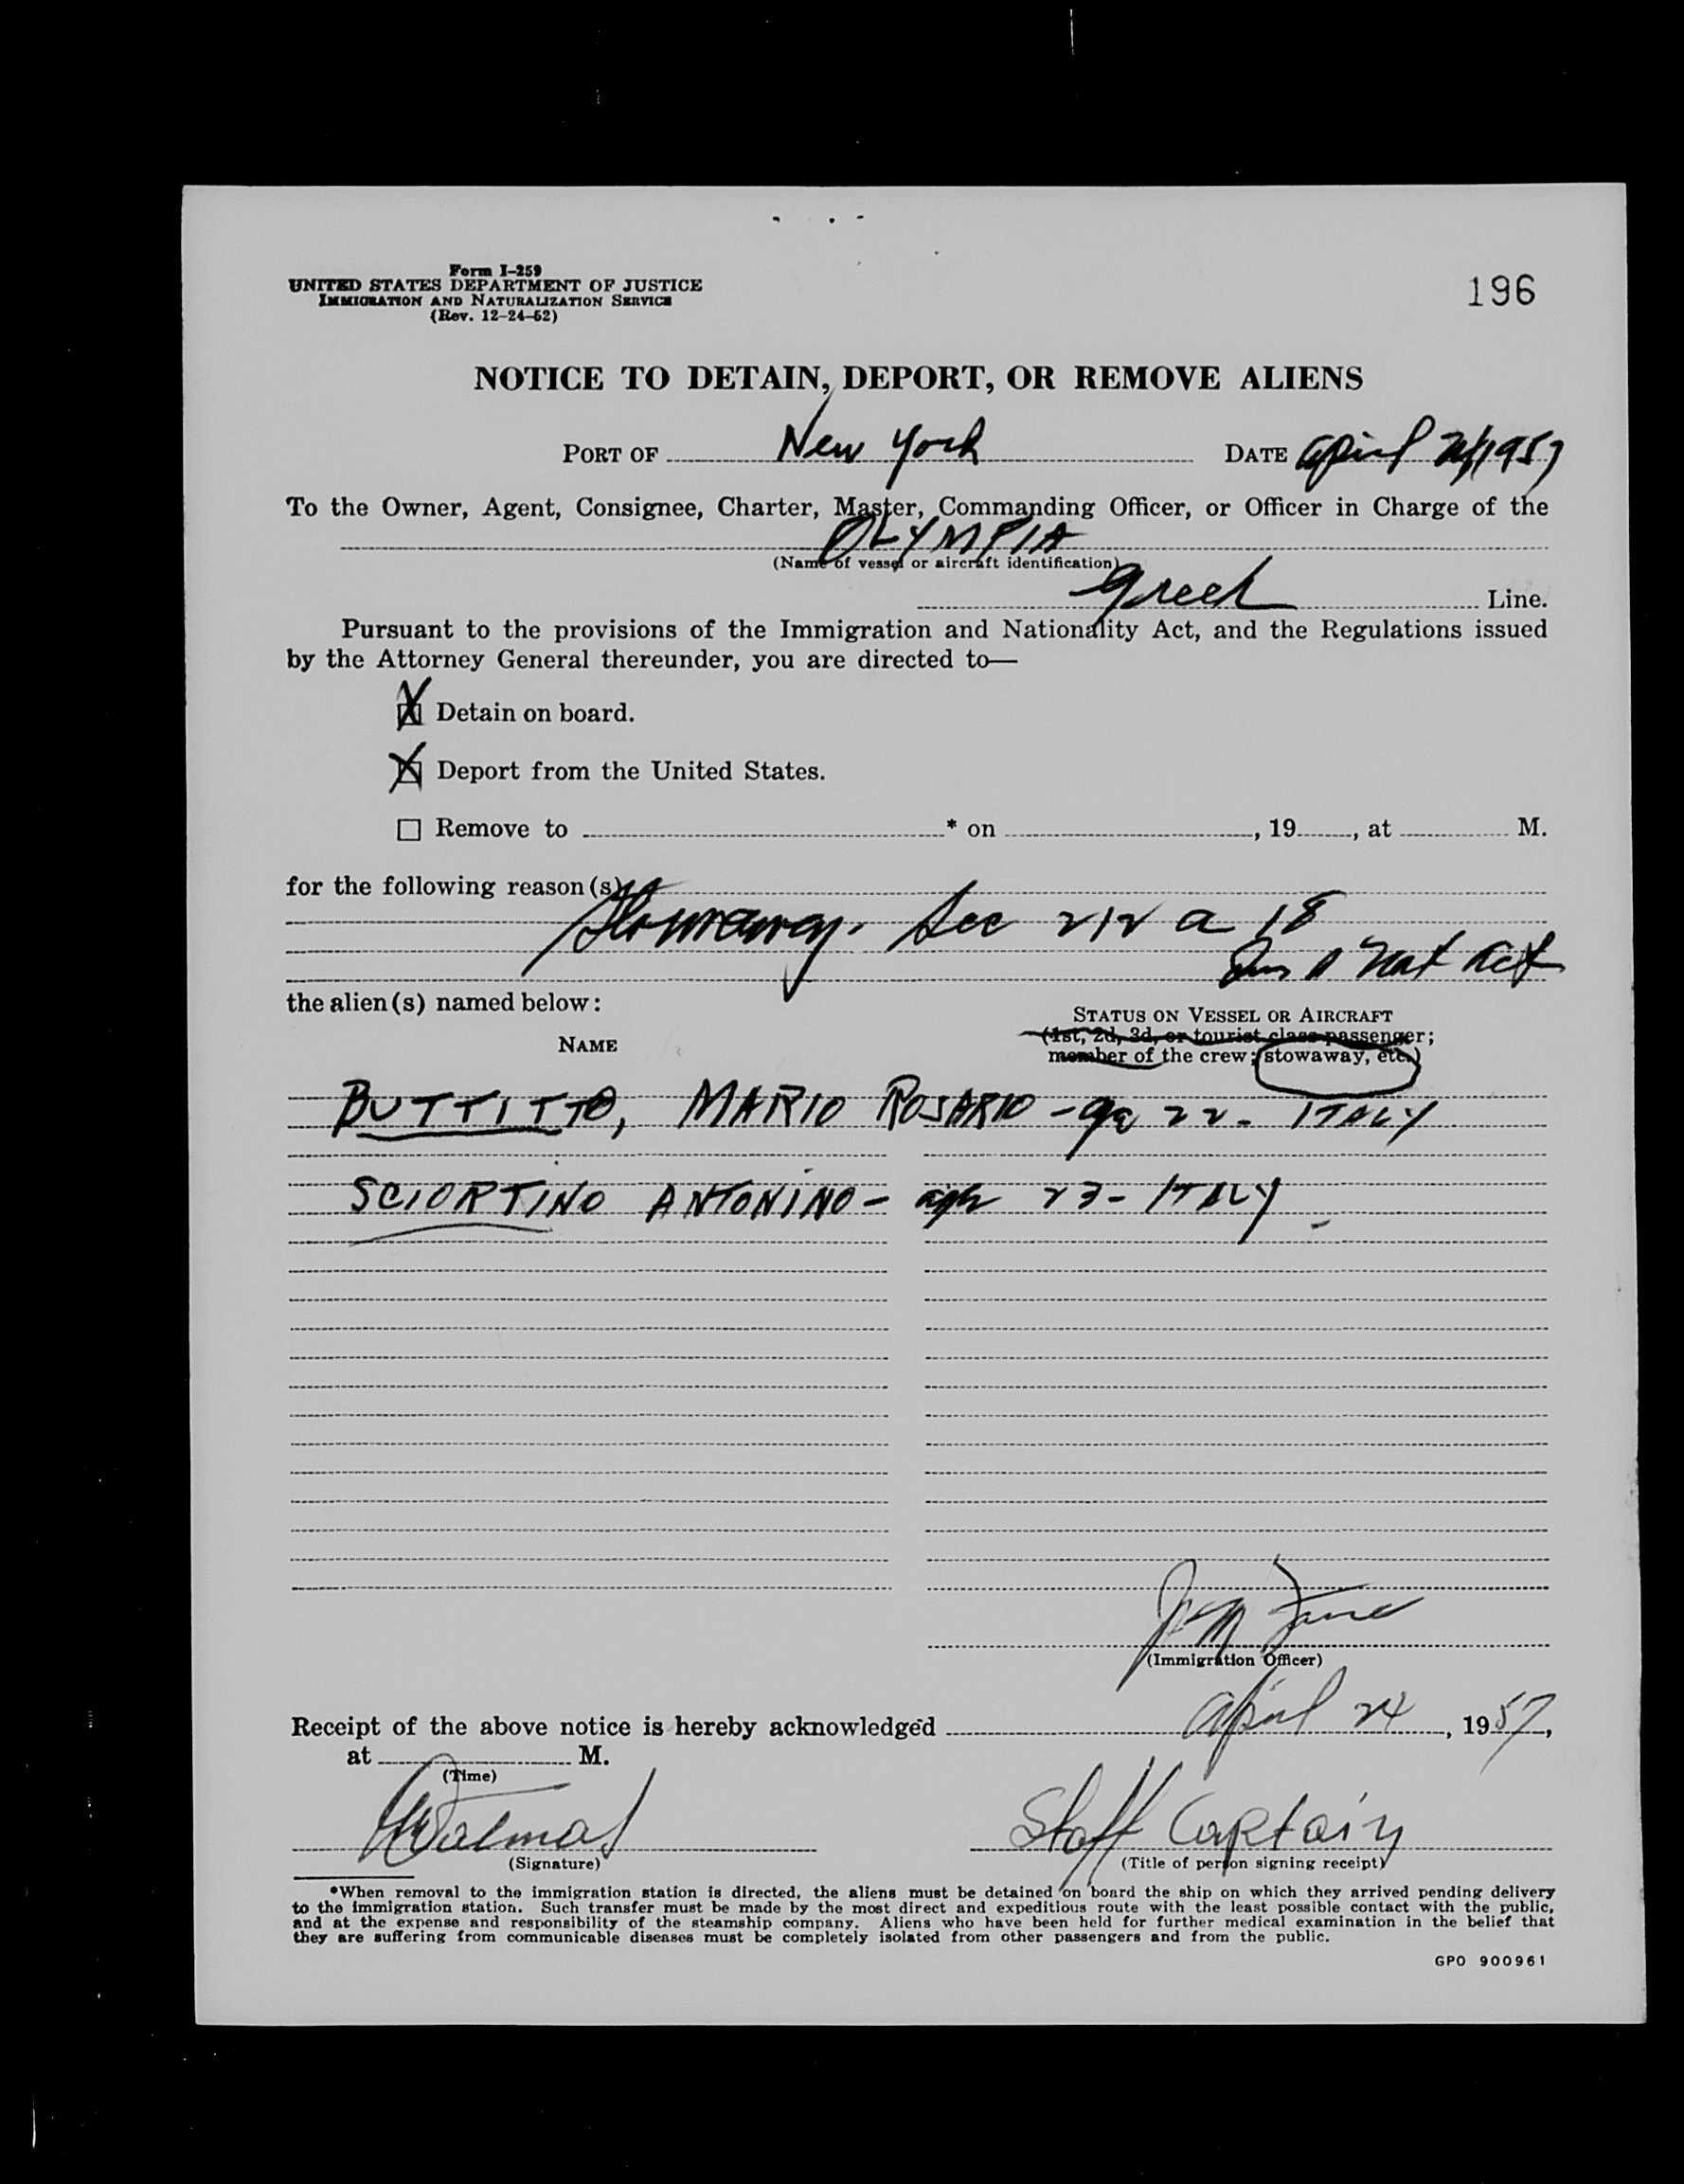 Form I-259
UNITED STATES DEPARTMENT OF JUSTICE
IMMIGRATION AND NATURALIZATION SERVICE
(Rev. 12-24-52)
196
NOTICE TO DETAIN, DEPORT, OR REMOVE ALIENS
PORT OF New York DATE April 24 1957
To the Owner, Agent, Consignee, Charter, Master, Commanding Officer, or Officer in Charge of the
OLYMPIA
(Name of vessel or aircraft identification)
Greek Line.
Pursuant to the provisions of the Immigration and Nationality Act, and the Regulations issued
by the Attorney General thereunder, you are directed to—
X Detain on board.
X Deport from the United States.
☐ Remove to * on , 19 , at M.
for the following reason(s)
Stowaway. Sec 212 a 18
Nat Act
the alien(s) named below:
NAME
STATUS ON VESSEL OR AIRCRAFT
(1st, 2d, 3d, or tourist class passenger;
member of the crew; stowaway, etc.)
BUTTITTO, MARIO ROSARIO - 22 - ITALY
SCIORTINO ANTONINO - 23 - ITALY
(Immigration Officer)
Receipt of the above notice is hereby acknowledged April 24, 1957,
at M.
(Time)
Staff Captain
(Signature)
(Title of person signing receipt)
*When removal to the immigration station is directed, the aliens must be detained on board the ship on which they arrived pending delivery
to the immigration station. Such transfer must be made by the most direct and expeditious route with the least possible contact with the public,
and at the expense and responsibility of the steamship company. Aliens who have been held for further medical examination in the belief that
they are suffering from communicable diseases must be completely isolated from other passengers and from the public.
GPO 900961